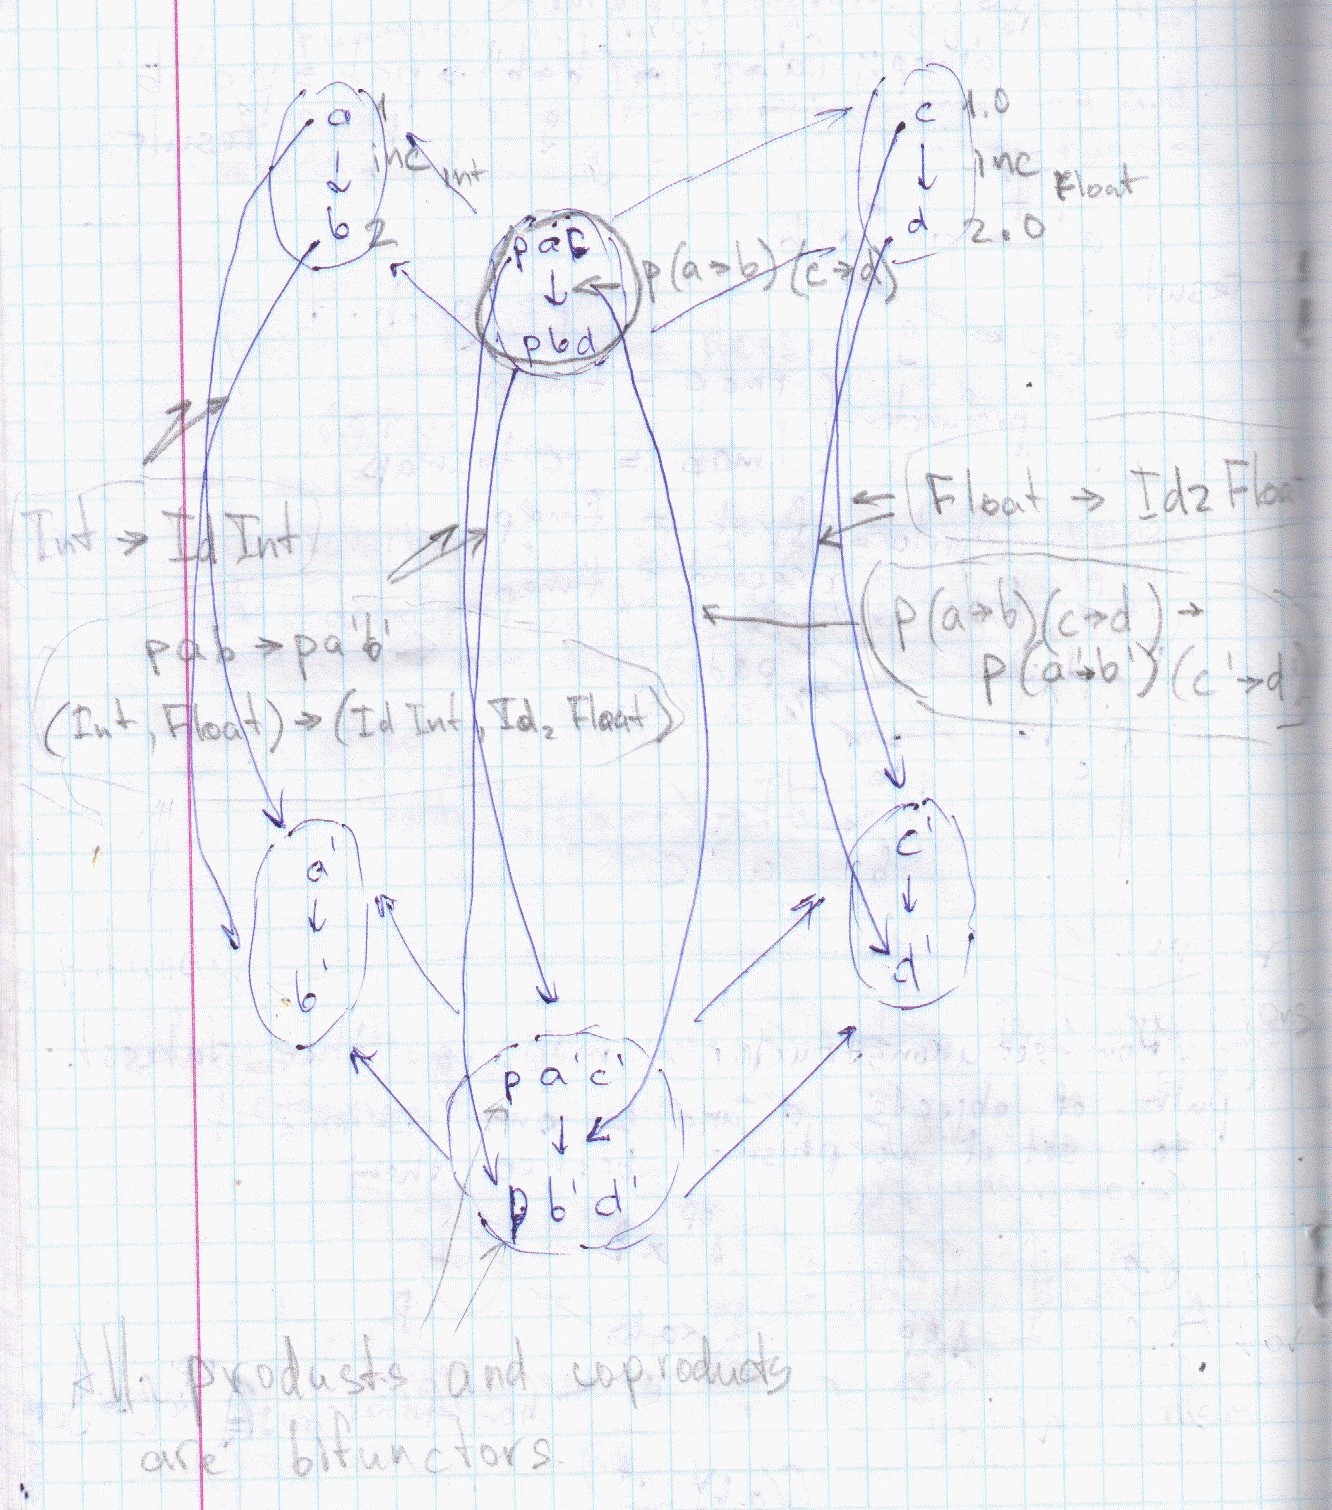 a 1
inc Int
b 2
c 1.0
inc Float
d 2.0
p a c
p(a→b)(c→d)
p b d
Int → Id Int
Float → Id2 Float
p a b → p a' b'
(Int, Float) → (Id Int, Id2 Float)
p(a→b)(c→d) →
p(a'→b')(c'→d'
a'
b'
c'
d'
p a' c'
p b' d'
All produsts and coproducts
are bifunctors.